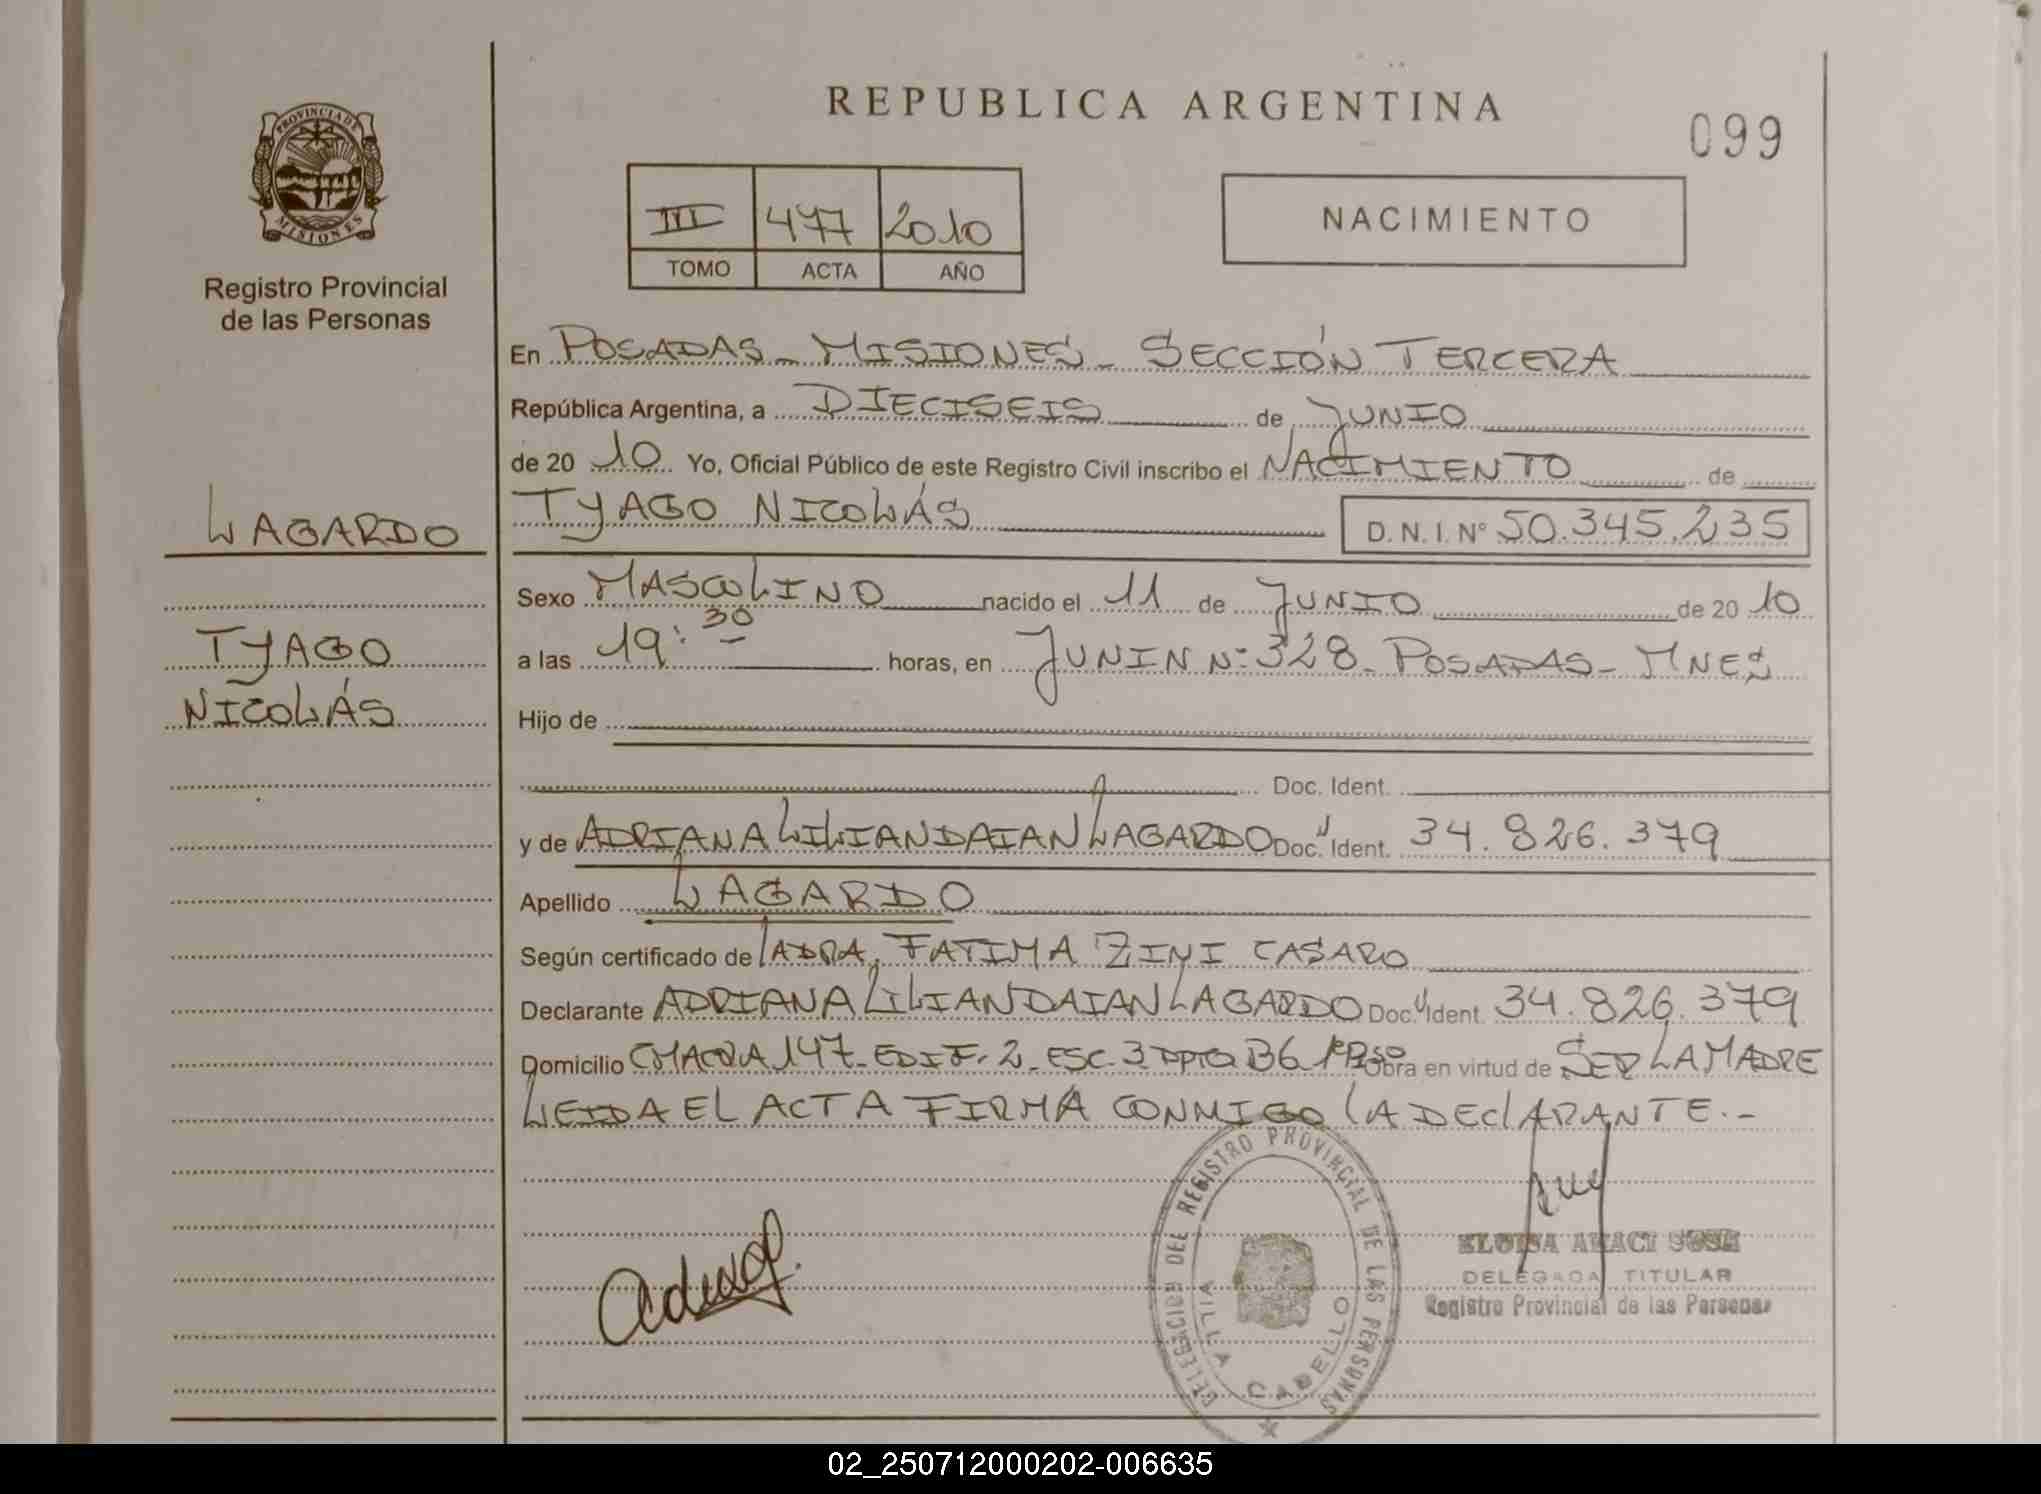 REPUBLICA ARGENTINA
099
PROVINCIA DE
MISIONES
Registro Provincial
de las Personas
III 477 2010
TOMO ACTA AÑO
NACIMIENTO
En POSADAS - MISIONES - SECCIÓN TERCERA
República Argentina, a DIECISEIS de JUNIO
de 20 10 Yo, Oficial Público de este Registro Civil inscribo el NACIMIENTO de
TYAGO NICOLÁS D. N. I. Nº 50.345.235
LAGARDO
TYAGO
NICOLÁS
Sexo MASCULINO nacido el 11 de JUNIO de 20 10
a las 19:30 horas, en JUNIN Nº 328 - POSADAS - MNES
Hijo de
Doc. Ident.
y de ADRIANA LILIAN DAIAN LAGARDO Doc. Ident. 34.826.379
Apellido LAGARDO
Según certificado de LA DRA. FATIMA ZINI CASARO
Declarante ADRIANA LILIAN DAIAN LAGARDO Doc. Ident. 34.826.379
Domicilio CHACRA 147 - EDIF. 2 - ESC. 3 DPTO B6 1º PISO Obra en virtud de SER LA MADRE
LEIDA EL ACTA FIRMA CONMIGO LA DECLARANTE.-
DELEGACION DEL REGISTRO PROVINCIAL DE LAS PERSONAS
VILLA CABELLO
ELOISA ARACI SOSA
DELEGADA TITULAR
Registro Provincial de las Personas
02_250712000202-006635